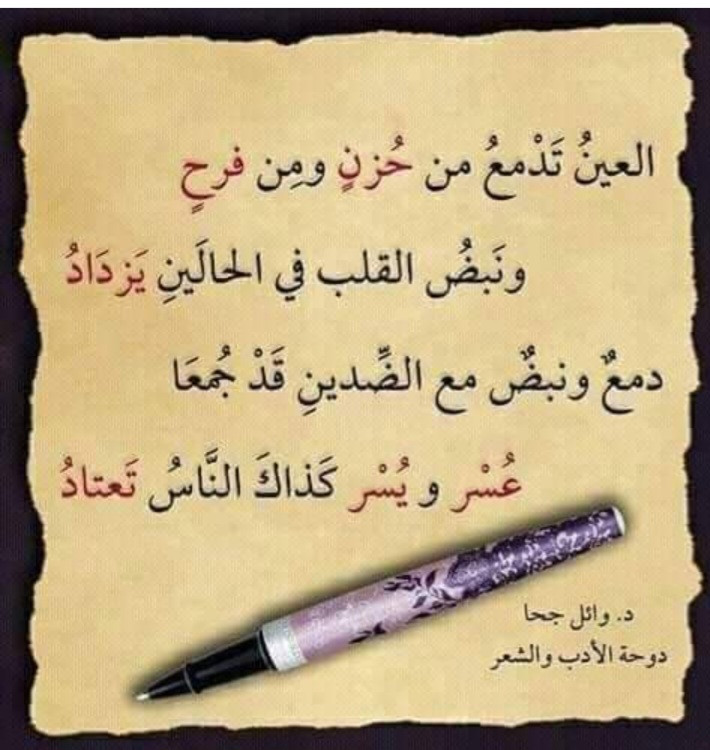 العينُ تَدْمعُ من حُزنٍ ومِن فرحٍ
ونَبضُ القلب في الحالَينِ يَزدَادُ
دمعٌ ونبضٌ مع الضِّدينِ قَدْ جُمعَا
عُسْر و يُسْر كَذاكَ النَّاسُ تَعتادُ
د. وائل جحا
دوحة الأدب والشعر